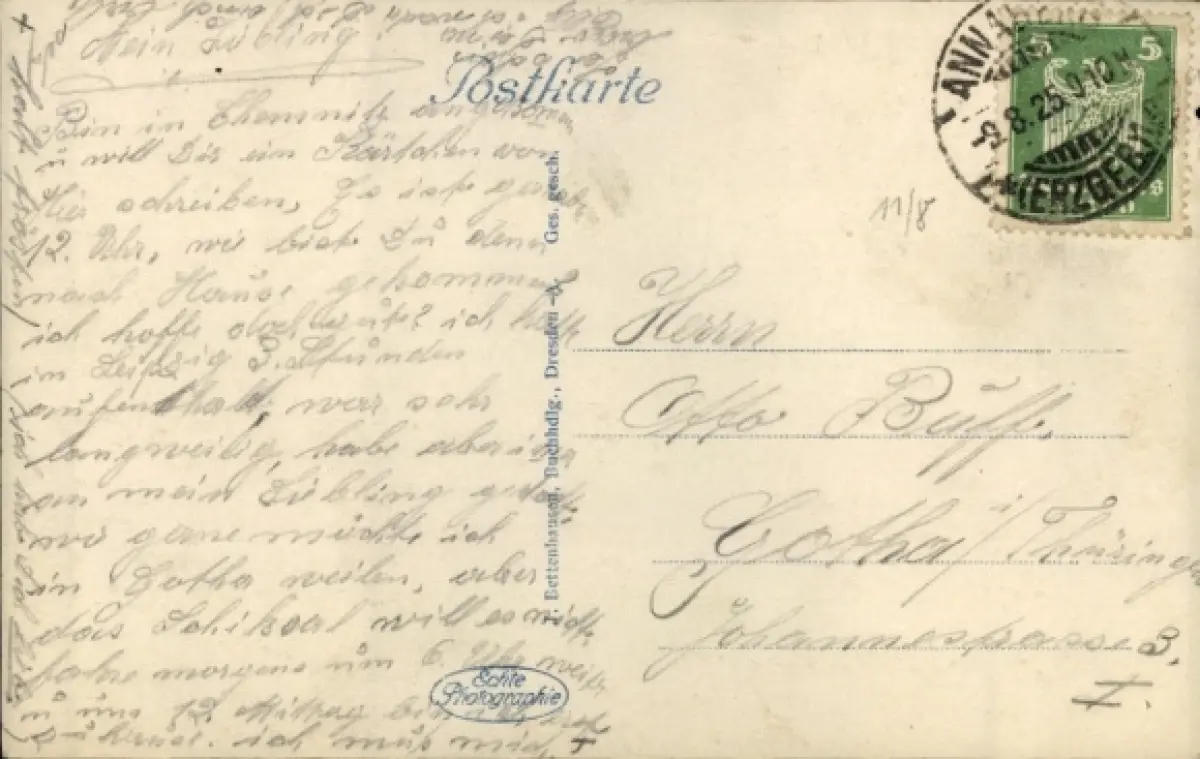 Mein Liebling!
Postkarte
Bin in Chemnitz angekommen
u will Dir ein Kärtchen von
hier schreiben, Es ist gerade
12. Uhr, wie bist Du denn
nach Hause gekommen
ich hoffe doch gut? ich hatte
in Leipzig 3. Stunden
aufenthalt, war sehr
langweilig, habe aber
an mein Liebling gedacht
wie gerne möchte ich
in Gotha weilen, aber
das Schiksal will es nicht
fahre morgens um 6. Uhr weiter
u um 12. Mittag bin ich
zu Hause. ich muß mich
Bettenhausen, Buchhdlg., Dresden-A. Ges. gesch.
Echte
Photographie
5 5
ANNABERG
-9.8.25.9-10 N
ERZGEB.
11/8
Herrn
Otto Buff.
Gotha i/Thüringen
Johannesstrasse 3.
I.